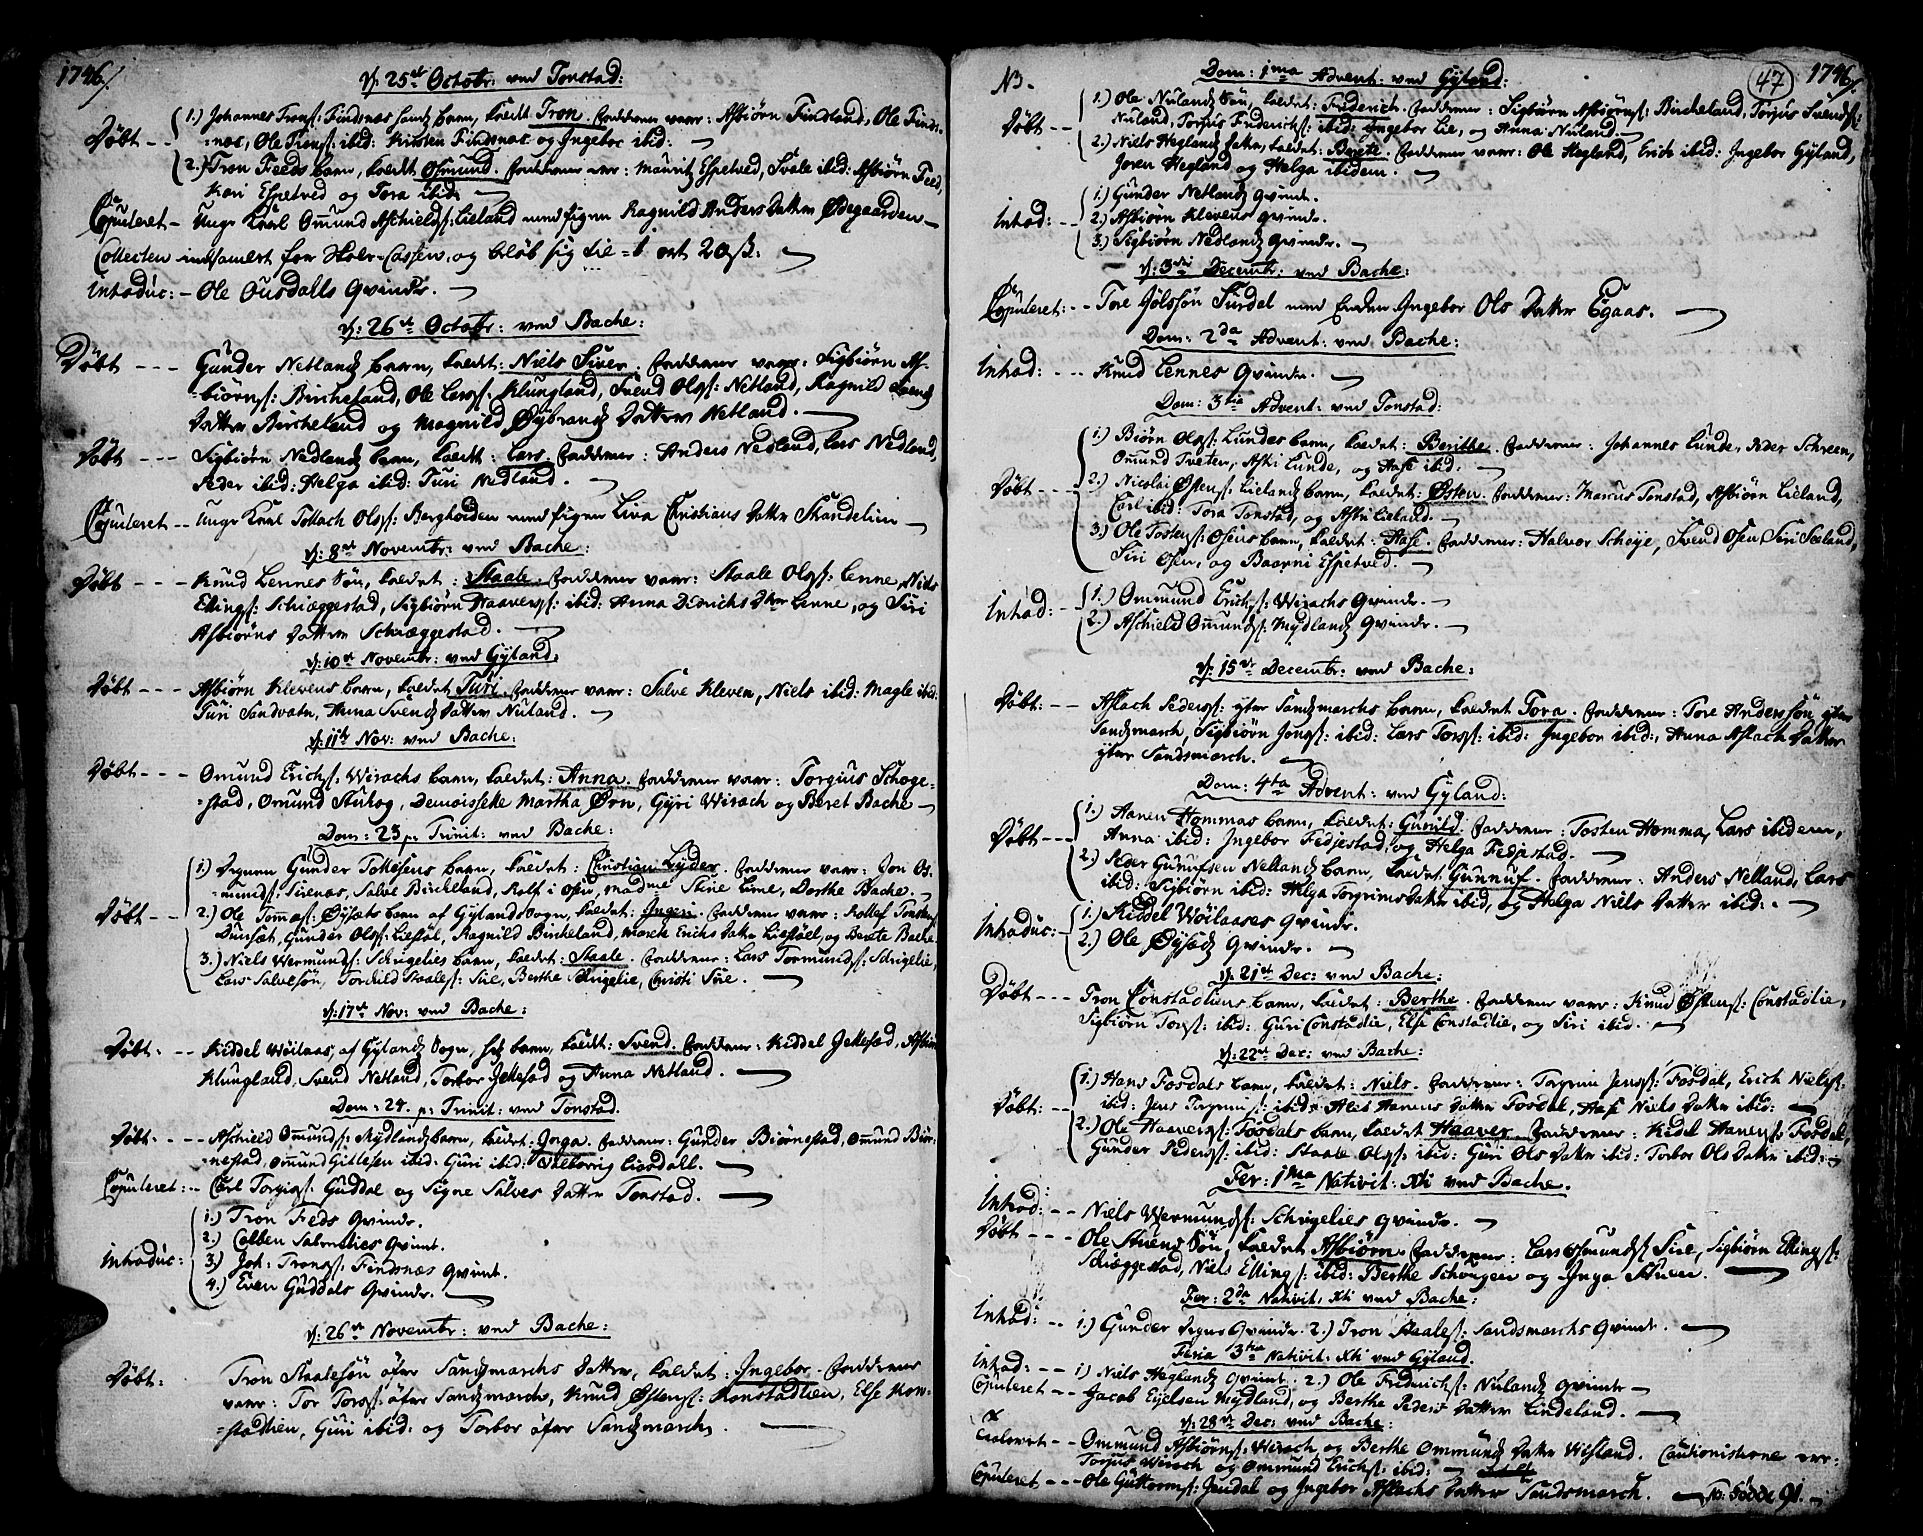 1746/.
d: 25de Octobr: ved Tonstad:
Döbt -- 1.) Johannes Trons: Findsnæs barn, kaldt Tron. Faddrene vare: Asbiörn Findland, Ole Finds-
=næs, Ole Trons: ibid: Kirsten Findsnæs og Ingebor ibid:
2.) Tron Feeds barn, kaldt Osmund. Faddrene vare: Mauritz Espetved, Svale ibid: Asbiörn Feed,
Kari Espetved og Tora ibid:
Copuleret - Unge Karl Omund Aschields: Lieland med pigen Ragnild Anders Datter Ødegaarden
Collecten indsamlet for Skole-Cassen, og belöb sig til = 1 ort 20 ß:
Introduc: - Ole Ousdalls Qvinde.
d: 26de Octobr: ved Bache:
Döbt --- Gunder Netlands barn, kaldt: Niels Siver. Faddrene vare: Sigbiörn As-
=biörns: Bircheland, Ole Lars: Klungland, Svend Ols: Netland, Ragnild Svends
Datter Bircheland og Magnild Øybrands Datter Netland.
Döbt --- Sigbiörn Nedlands barn, kaldt: Lars. Faddrene: Anders Nedland, Lars Nedland,
Peder ibid: Helga ibid: Turi Nedland.
Copuleret -- Unge Karl Tollach Ols: Berghoiden med pigen Liva Christians Datter Skandelien
d: 8de Novembr: ved Bache:
Döbt --- Knud Lennes Sön, kaldt: Staale. Faddrene vare: Staale Ols: Lenne, Niels
Ellings: Schiæggestad, Sigbiörn Haavers: ibid: Anna Didrichs Dttr Lenne, og Siri
Asbiörns Datter Schiæggestad.
d: 10de Novembr: ved Gyland:
Döbt --- Asbiörn Klevens barn, kaldet Turi. Faddrene vare: Salve Kleven, Niels ibid: Magle ibid:
Turi Sandvatn, Anna Svends Datter Nuland.
d: 11te Nov: ved Bache:
Döbt --- Omund Erichs: Wirachs barn, kaldet: Anna. Faddrene vare: Torgius Schoge-
=stad, Omund Stuhog, Demoisselle Martha Ørn, Gyri Wirach og Beret Bache
Dom: 23 p: Trinit: ved Bache:
Döbt -- 1.) Degnen Gunder Tollefsens barn, kaldet: Christian Lyder. Faddrene vare: Jon Os-
=munds: Sirnæs, Salve Bircheland, Rolf i Osen, Madme Stine Lime, Dorthe Bache.
2.) Ole Tomas: Øysæts barn af Gylands Sogn, kaldet: Ingeri. Faddrene vare: Rollef Tonstad,
Dunsæt, Gunder Ols: Liestöl, Ragnild Bircheland, Maren Erichs Dattr Liestöll, og Berete Bache.
3.) Niels Wermunds: Schrigelies barn, kaldet: Staale. Faddrene: Lars Tormunds: Schrigelie,
Lars Salvesön, Torkild Staales: Sire, Berthe Schrigelie, Christi Sire.
d: 17de Nov: ved Bache:
Döbt: -- Kiddel Wöilaas, af Gylands Sogn, hs barn, kaldt: Svend. Faddrene: Kiddel Jellestad, Asbiörn
Klungland, Svend Netland, Torbor Jellestad og Anna Netland.
Dom: 24. p: Trinit: ved Tonstad.
Döbt: --- Aschield Omunds: Mydlands barn, kaldet: Inga. Faddrene: Gunder Biörnestad, Omund Biör-
=nestad, Omund Gillesen ibid: Guri ibid: Valborrig Liosdall.
Copuleret: -- Carl Torgis: Guddal og Signe Salves Datter Tonstad.
Introduc: 1.) Tron Feds Qvinde.
2.) Colben Salmelies Qvinde.
3.) Joh: Trons: Findsnæs Qvinde.
4.) Even Guddals Qvinde.
d: 26de Novembr: ved Bache:
Döbt: Tron Staalesön öfre Sandsmarchs Datter, kaldet: Ingebor. Faddrene
vare: Tor Tors: öfre Sandsmarch, Knud Østens: Konstadlien, Else Kon-
=stadlien, Guri ibid: og Torbor öfre Sandsmarch.
NB.
47
1746/.
Dom: 1ma Advent: ved Gyland:
Döbt -- 1.) Ole Nulands Sön, kaldet: Frederich. Faddrene: Sigbiörn Asbiörns: Bircheland, Torjus Svends:
Nuland, Torjus Friderichs: ibid: Ingebor Lie, og Anna Nuland.
2.) Niels Heglands Datter, kaldet: Berete. Faddrene vare: Ole Hegland, Erich ibid: Ingebor Gyland,
Joren Hegland og Helga ibidem.
Introd: -- 1.) Gunder Netlands Qvinde.
2.) Asbiörn Klevens Qvinde.
3.) Sigbiörn Nedlands Qvinde.
d: 3die Decembr: ved Bache:
Copuleret: -- Tore Jölssön Surdal med Enken Ingebor Ols Datter Egaas.
Dom: 2da Advent: ved Bache:
Introd: --- Knud Lennes Qvinde.
Dom: 3tia Advent: ved Tonstad:
Döbt --- 1.) Biörn Ols: Lundes barn, kaldet: Berithe. Faddrene: Johannes Lunde, Peder Schreen,
Omund Tveten, Aski Lunde, og Aase ibid.
2.) Nicolai Østens: Lielands barn, kaldet: Østen. Faddrene: Marcus Tonstad, Asbiörn Lieland,
Carl ibid: Tora Tonstad, og Aski Lieland.
3.) Ole Tostens: Osens barn, kaldet: Aase. Faddrene: Halvor Scheye, Svend Osen, Siri Seeland,
Siri Osen, og Baarni Espetved.
Introd: - 1.) Ommund Erichs: Wirachs Qvinde.
2.) Aschield Omunds: Mydlands Qvinde.
d: 15de Decembr: ved Bache:
Döbt: -- Aslach Peders: yfre Sandsmarchs barn, kaldet Tora. Faddrene: Tore Anderssön yfre
Sandsmarch, Sigbiörn Jons: ibid: Lars Tors: ibid: Ingebor ibid:, Anna Aslach Datter
yfre Sandsmarch.
Dom: 4ta Advent: ved Gyland:
Döbt -- 1.) Hanen Hommas barn, kaldet: Gunild. Faddrene: Tosten Homma, Lars ibidem,
Anna ibid: Ingebor Fedjestad, og Helga Fedjestad.
2.) Peder Gunufsen Netlands barn, kaldet Gunnuf. Faddrene: Anders Netland, Lars
ibid: Sigbiörn ibid: Helga Torgrims Datter ibid, og Helga Niels Datter ibid:.
Introduc: - 1.) Kiddel Wöilaases Qvinde.
2.) Ole Øysæds Qvinde.
d: 21de Dec: ved Bache:
Döbt --- Tron Constadliens barn, kaldet: Berthe. Faddrene vare: Knud Østens: Constadlie,
Sigbiörn Tors: ibid: Guri Constadlie, Else Constadlie, og Siri ibid.
d: 22de Dec: ved Bache:
Döbt: -- 1.) Hans Fosdals barn, kaldet: Niels. Faddrene: Torgrim Jens: Fosdal, Erich Niels:
ibid: Jens Torgrims: ibid: Alis Hanens Datter Fosdal, Aase Niels Datter ibid:
2.) Ole Haavers: Fosdals barn, kaldet Haaver. Faddrene: Kidel Hanens: Fosdal,
Gunder Peders: ibid: Staale Ols: ibid: Guri Ols Datter ibid: Torbor Ols Datter ibid:
Fer: 1ma Nativit: Xti ved Bache.
Introd: -- Niels Wermunds: Schrigelies Qvinde.
Döbt --- Ole Stuens Sön, kaldet Asbiörn. Faddrene: Lars Osmunds: Sire, Sigbiörn Ellings:
Schiæggestad, Niels Ellings: ibid: Berthe Schougen og Inga Stuen.
Fer: 2da Nativit: Xti ved Bache:
Introd: -- 1.) Gunder Degns Qvinde. 2.) Tron Staales: Sandsmarchs Qvinde.
Feria 3tia Nativit: Xti ved Gyland.
Introd: -- 1) Niels Heglands Qvinde: 2.) Ole Frederichs: Nulands Qvinde
Copuleret -- Jacob Eyelsen Mydland, og Berthe Peders Datter Lindeland.
d: 28de Dec: ved Bache:
Trolovet -- Ommund Asbiörns: Wirach og Berthe Ommunds Datter Wisland. Cautionisterne vare:
Torjus Wirach og Ommund Erichs: ibid:
Copuleret --- Ole Guttorms: Jeudal og Ingebor Aslachs Datter Sandsmarch. - No: Födde 91.